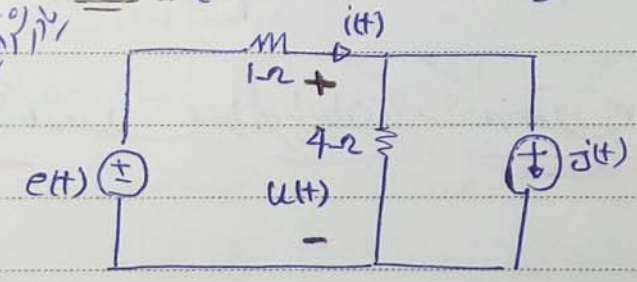 i(t)
1Ω +
4Ω
e(t) ± j(t)
U(t)
-